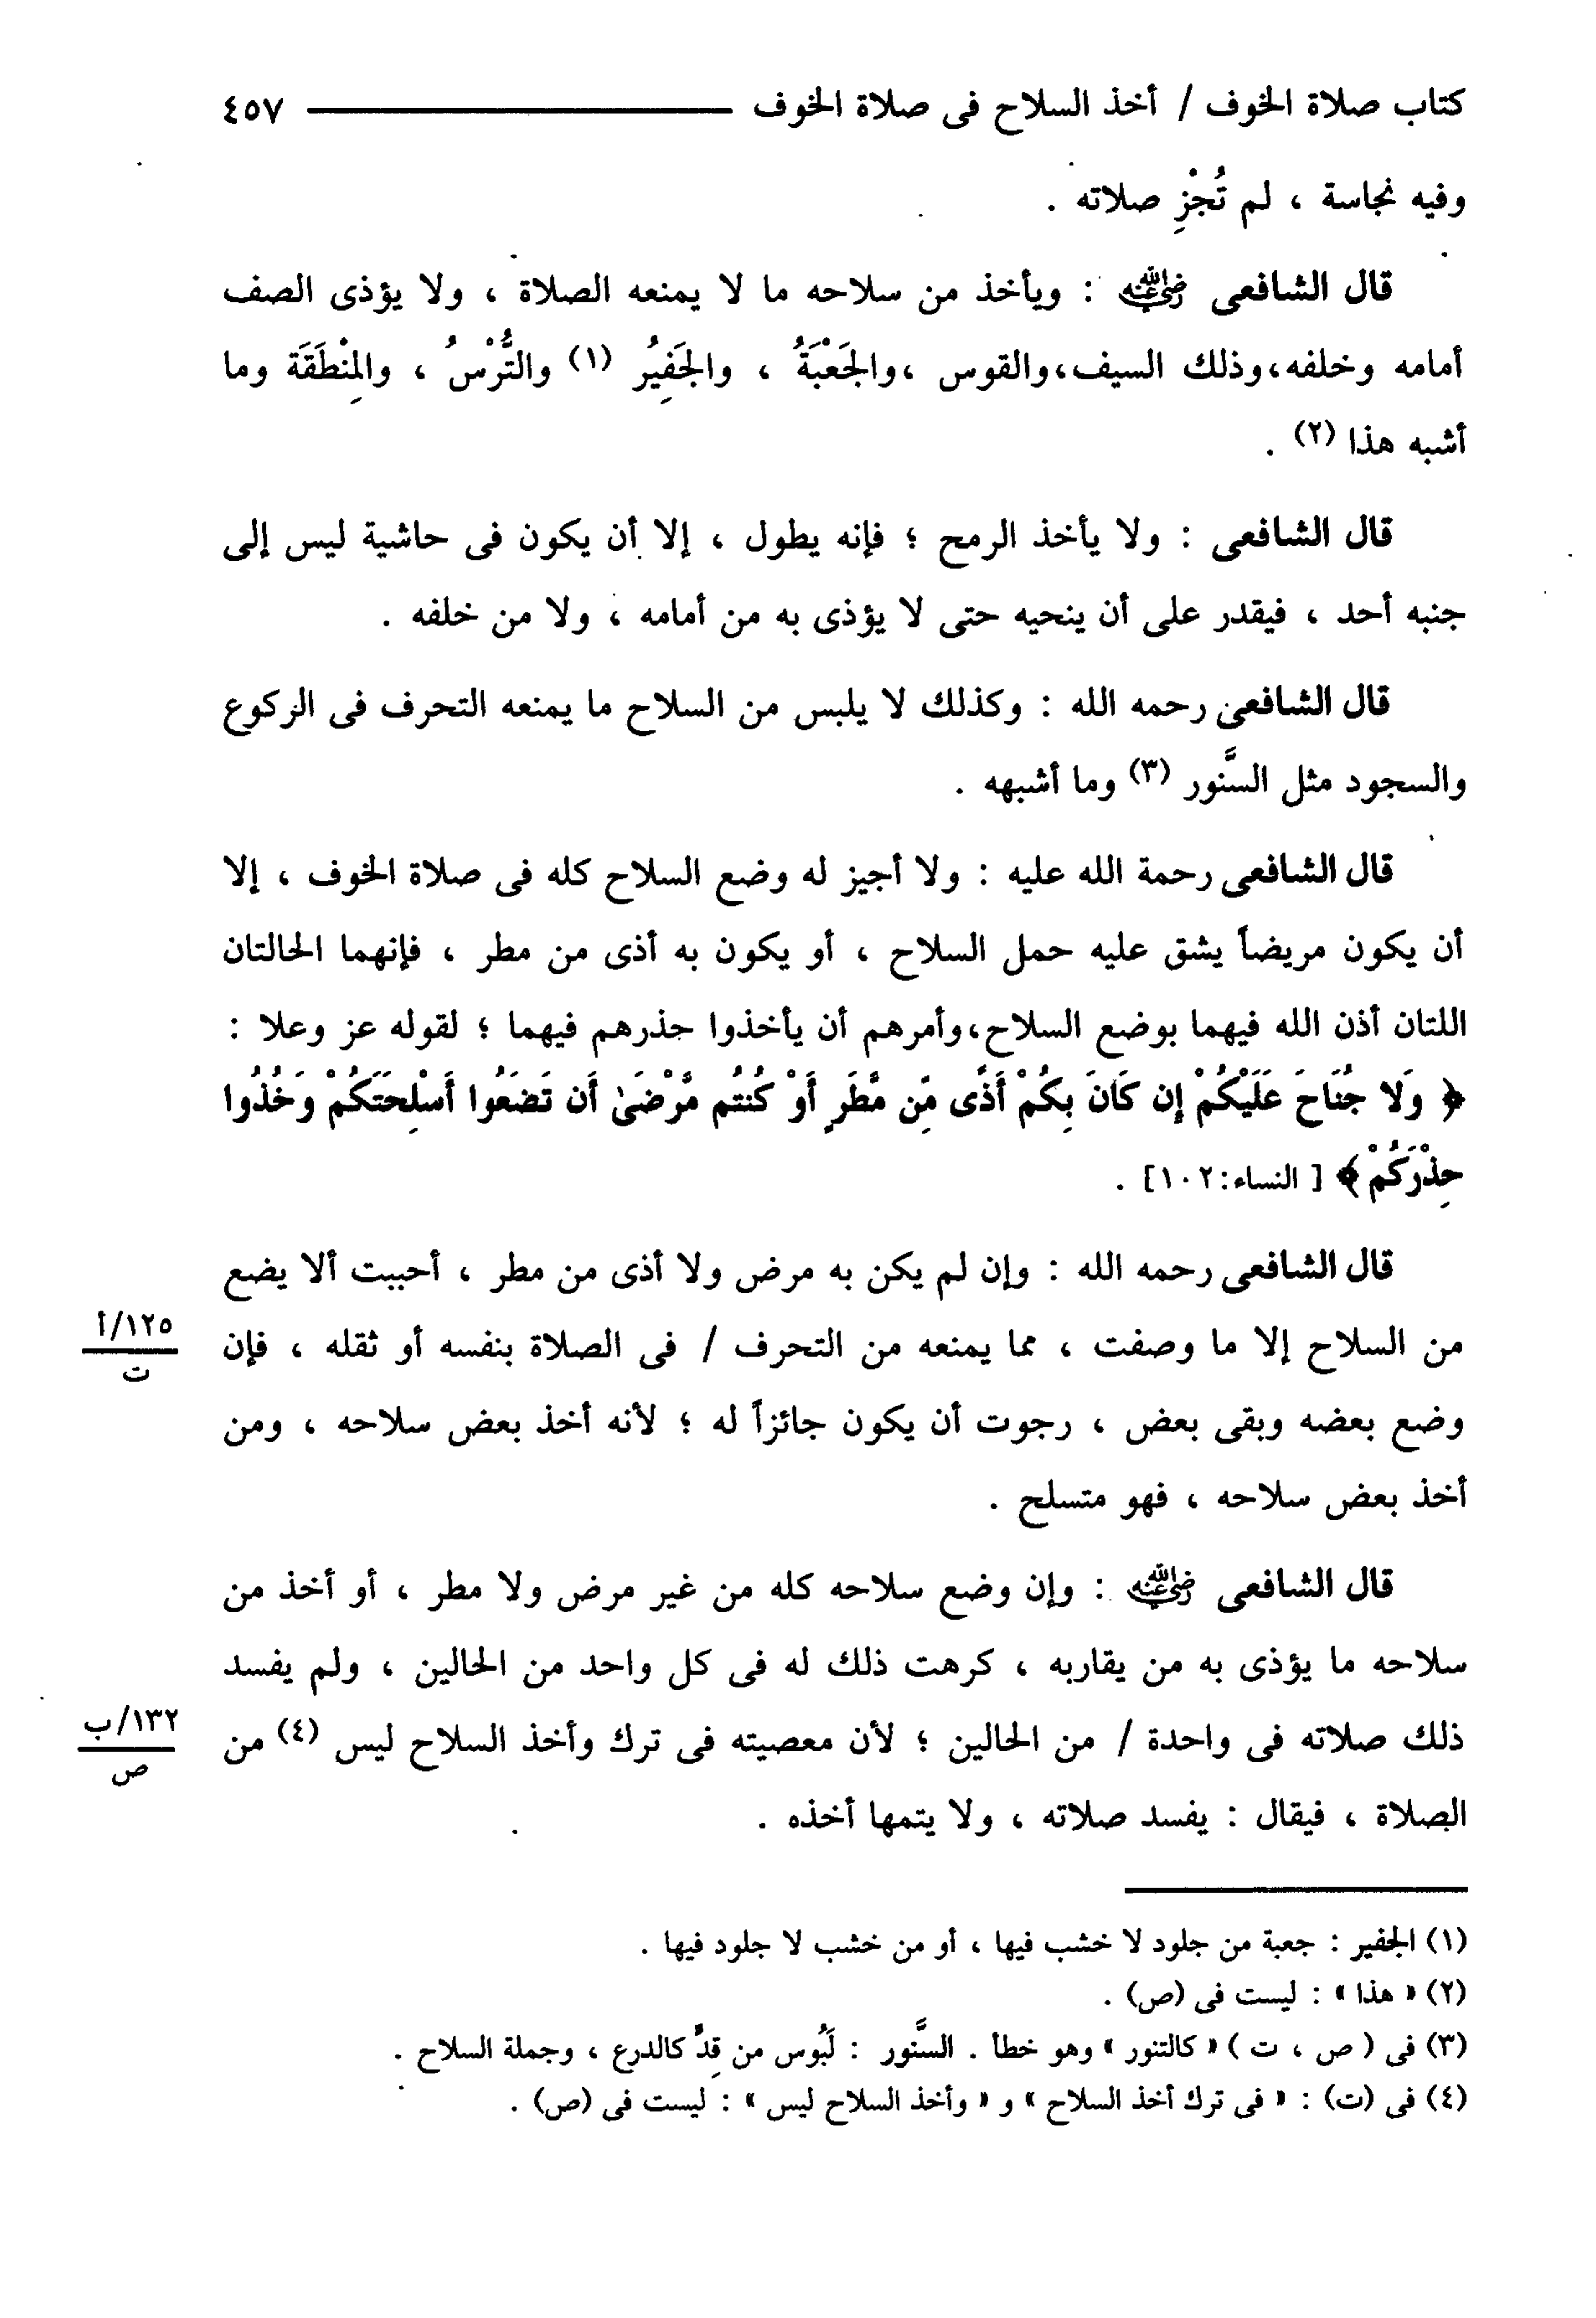 كتاب صلاة الخوف / أخذ السلاح فى صلاة الخوف ــــــــــــ ٤٥٧
وفيه نجاسة ، لم تُجْزِ صلاته .
قال الشافعى رضي الله عنه : ويأخذ من سلاحه ما لا يمنعه الصلاة ، ولا يؤذى الصف
أمامه وخلفه،وذلك السيف،والقوس ،والجَعْبَةُ ، والجَفِيرُ (١) والتُّرْسُ ، والمِنْطَقَة وما
أشبه هذا (٢) .
قال الشافعى : ولا يأخذ الرمح ؛ فإنه يطول ، إلا أن يكون فى حاشية ليس إلى
جنبه أحد ، فيقدر على أن ينحيه حتى لا يؤذى به من أمامه ، ولا من خلفه .
قال الشافعى رحمه الله : وكذلك لا يلبس من السلاح ما يمنعه التحرف فى الركوع
والسجود مثل السَّنور (٣) وما أشبهه .
قال الشافعى رحمة الله عليه : ولا أجيز له وضع السلاح كله فى صلاة الخوف ، إلا
أن يكون مريضاً يشق عليه حمل السلاح ، أو يكون به أذى من مطر ، فإنهما الحالتان
اللتان أذن الله فيهما بوضع السلاح،وأمرهم أن يأخذوا حذرهم فيهما ؛ لقوله عز وعلا :
﴿ وَلا جُنَاحَ عَلَيْكُمْ إِن كَانَ بِكُمْ أَذًى مِّن مَّطَرٍ أَوْ كُنتُم مَّرْضَىٰ أَن تَضَعُوا أَسْلِحَتَكُمْ وَخُذُوا
حِذْرَكُمْ ﴾ [ النساء:١٠٢] .
قال الشافعى رحمه الله : وإن لم يكن به مرض ولا أذى من مطر ، أحببت ألا يضع
من السلاح إلا ما وصفت ، مما يمنعه من التحرف / فى الصلاة بنفسه أو ثقله ، فإن
١٢٥/أ
ت
وضع بعضه وبقى بعض ، رجوت أن يكون جائزاً له ؛ لأنه أخذ بعض سلاحه ، ومن
أخذ بعض سلاحه ، فهو متسلح .
قال الشافعى رضي الله عنه : وإن وضع سلاحه كله من غير مرض ولا مطر ، أو أخذ من
سلاحه ما يؤذى به من يقاربه ، كرهت ذلك له فى كل واحد من الحالين ، ولم يفسد
ذلك صلاته فى واحدة / من الحالين ؛ لأن معصيته فى ترك وأخذ السلاح ليس (٤) من
١٣٢/ب
ص
الصلاة ، فيقال : يفسد صلاته ، ولا يتمها أخذه .
(١) الجفير : جعبة من جلود لا خشب فيها ، أو من خشب لا جلود فيها .
(٢) « هذا » : ليست فى (ص) .
(٣) فى ( ص ، ت ) « كالتنور » وهو خطأ . السَّنور : لَبُوس من قِدٍّ كالدرع ، وجملة السلاح .
(٤) فى (ت) : « فى ترك أخذ السلاح » و « وأخذ السلاح ليس » : ليست فى (ص) .